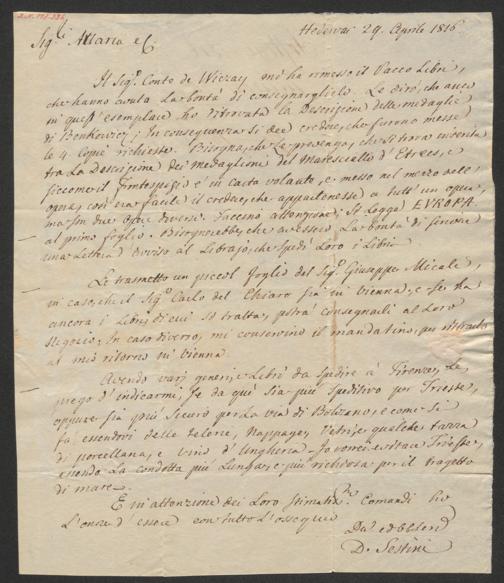 Hedervar 29. Aprile 1816
Sigri Artaria e C.
Il Sigr. Conte de Wiczay mi ha rimesso il Pacco Libri,
che hanno avuta la bontà di consegnarglielo. Le dirò, che anco
in quest' esemplare ho ritrovata la Descrizione delle medaglie
di Benkowicz; In conseguenza si dee credere, che furono messe
le 4. Copie richieste. Bisogna, che Le prevenga, che si trova inserita
tra la Descrizione dei Medaglioni del Maresciallo d'Etrees, e
siccome il frontespizio è in carta volante, e messo nel mezzo dell'
opera, così era facile il credere, che appartenesse a tutt' un opera,
ma son due opere diverse. Faccino attenzione; Si Legge EVROPA.
al primo foglio. Bisognerebbe, che avessero la bontà di scrivere
una Lettera d'avviso al Librajo, che spedì Loro i Libri.
Le trasmetto un piccol foglio del Sigr. Giuseppe Micali,
in caso, che il Sigr. Carlo del Chiaro sia in Vienna, e se ha
ancora i Libri di cui si tratta, potrà consegnarli al Loro
Negozio. In caso diverso, mi conservino il mandatino, per ritirarlo
al mio ritorno in Vienna
Avendo varj generi, e Libri da spedire a Firenze, Le
prego d'indicarmi, se da quì sia più speditivo per Trieste,
oppure sia più sicuro per la via di Bolzano, e come si
fa, essendovi delle telerie, Nappage, Vetri, e qualche tazza
di porcellana, e vino d'Ungheria. Io vorrei evitare Trieste,
essendo la condotta più Lunga, e più rischiosa per il tragetto
di mare.
E in attenzione dei Loro stimatmi Comandi ho
L'onore d'essere con tutto L'ossequio
D. Sestini